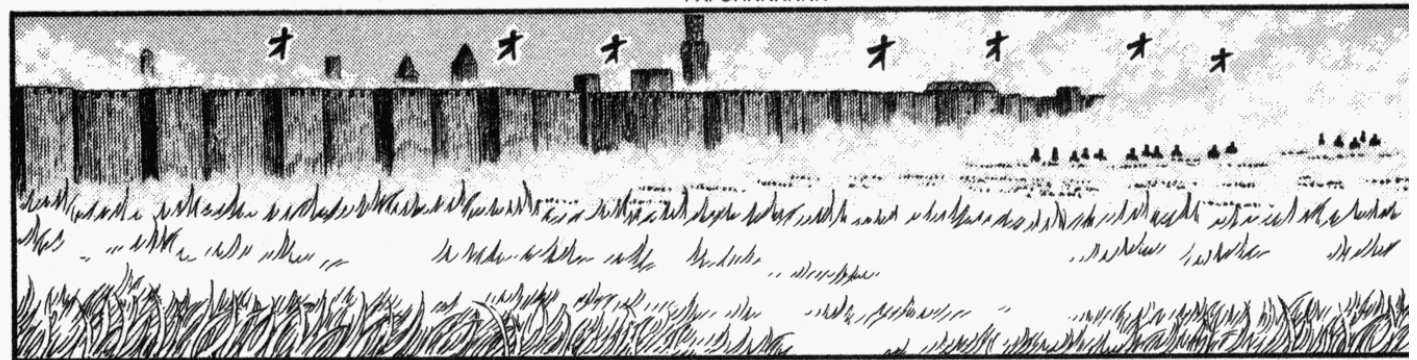 オオオオオオオ